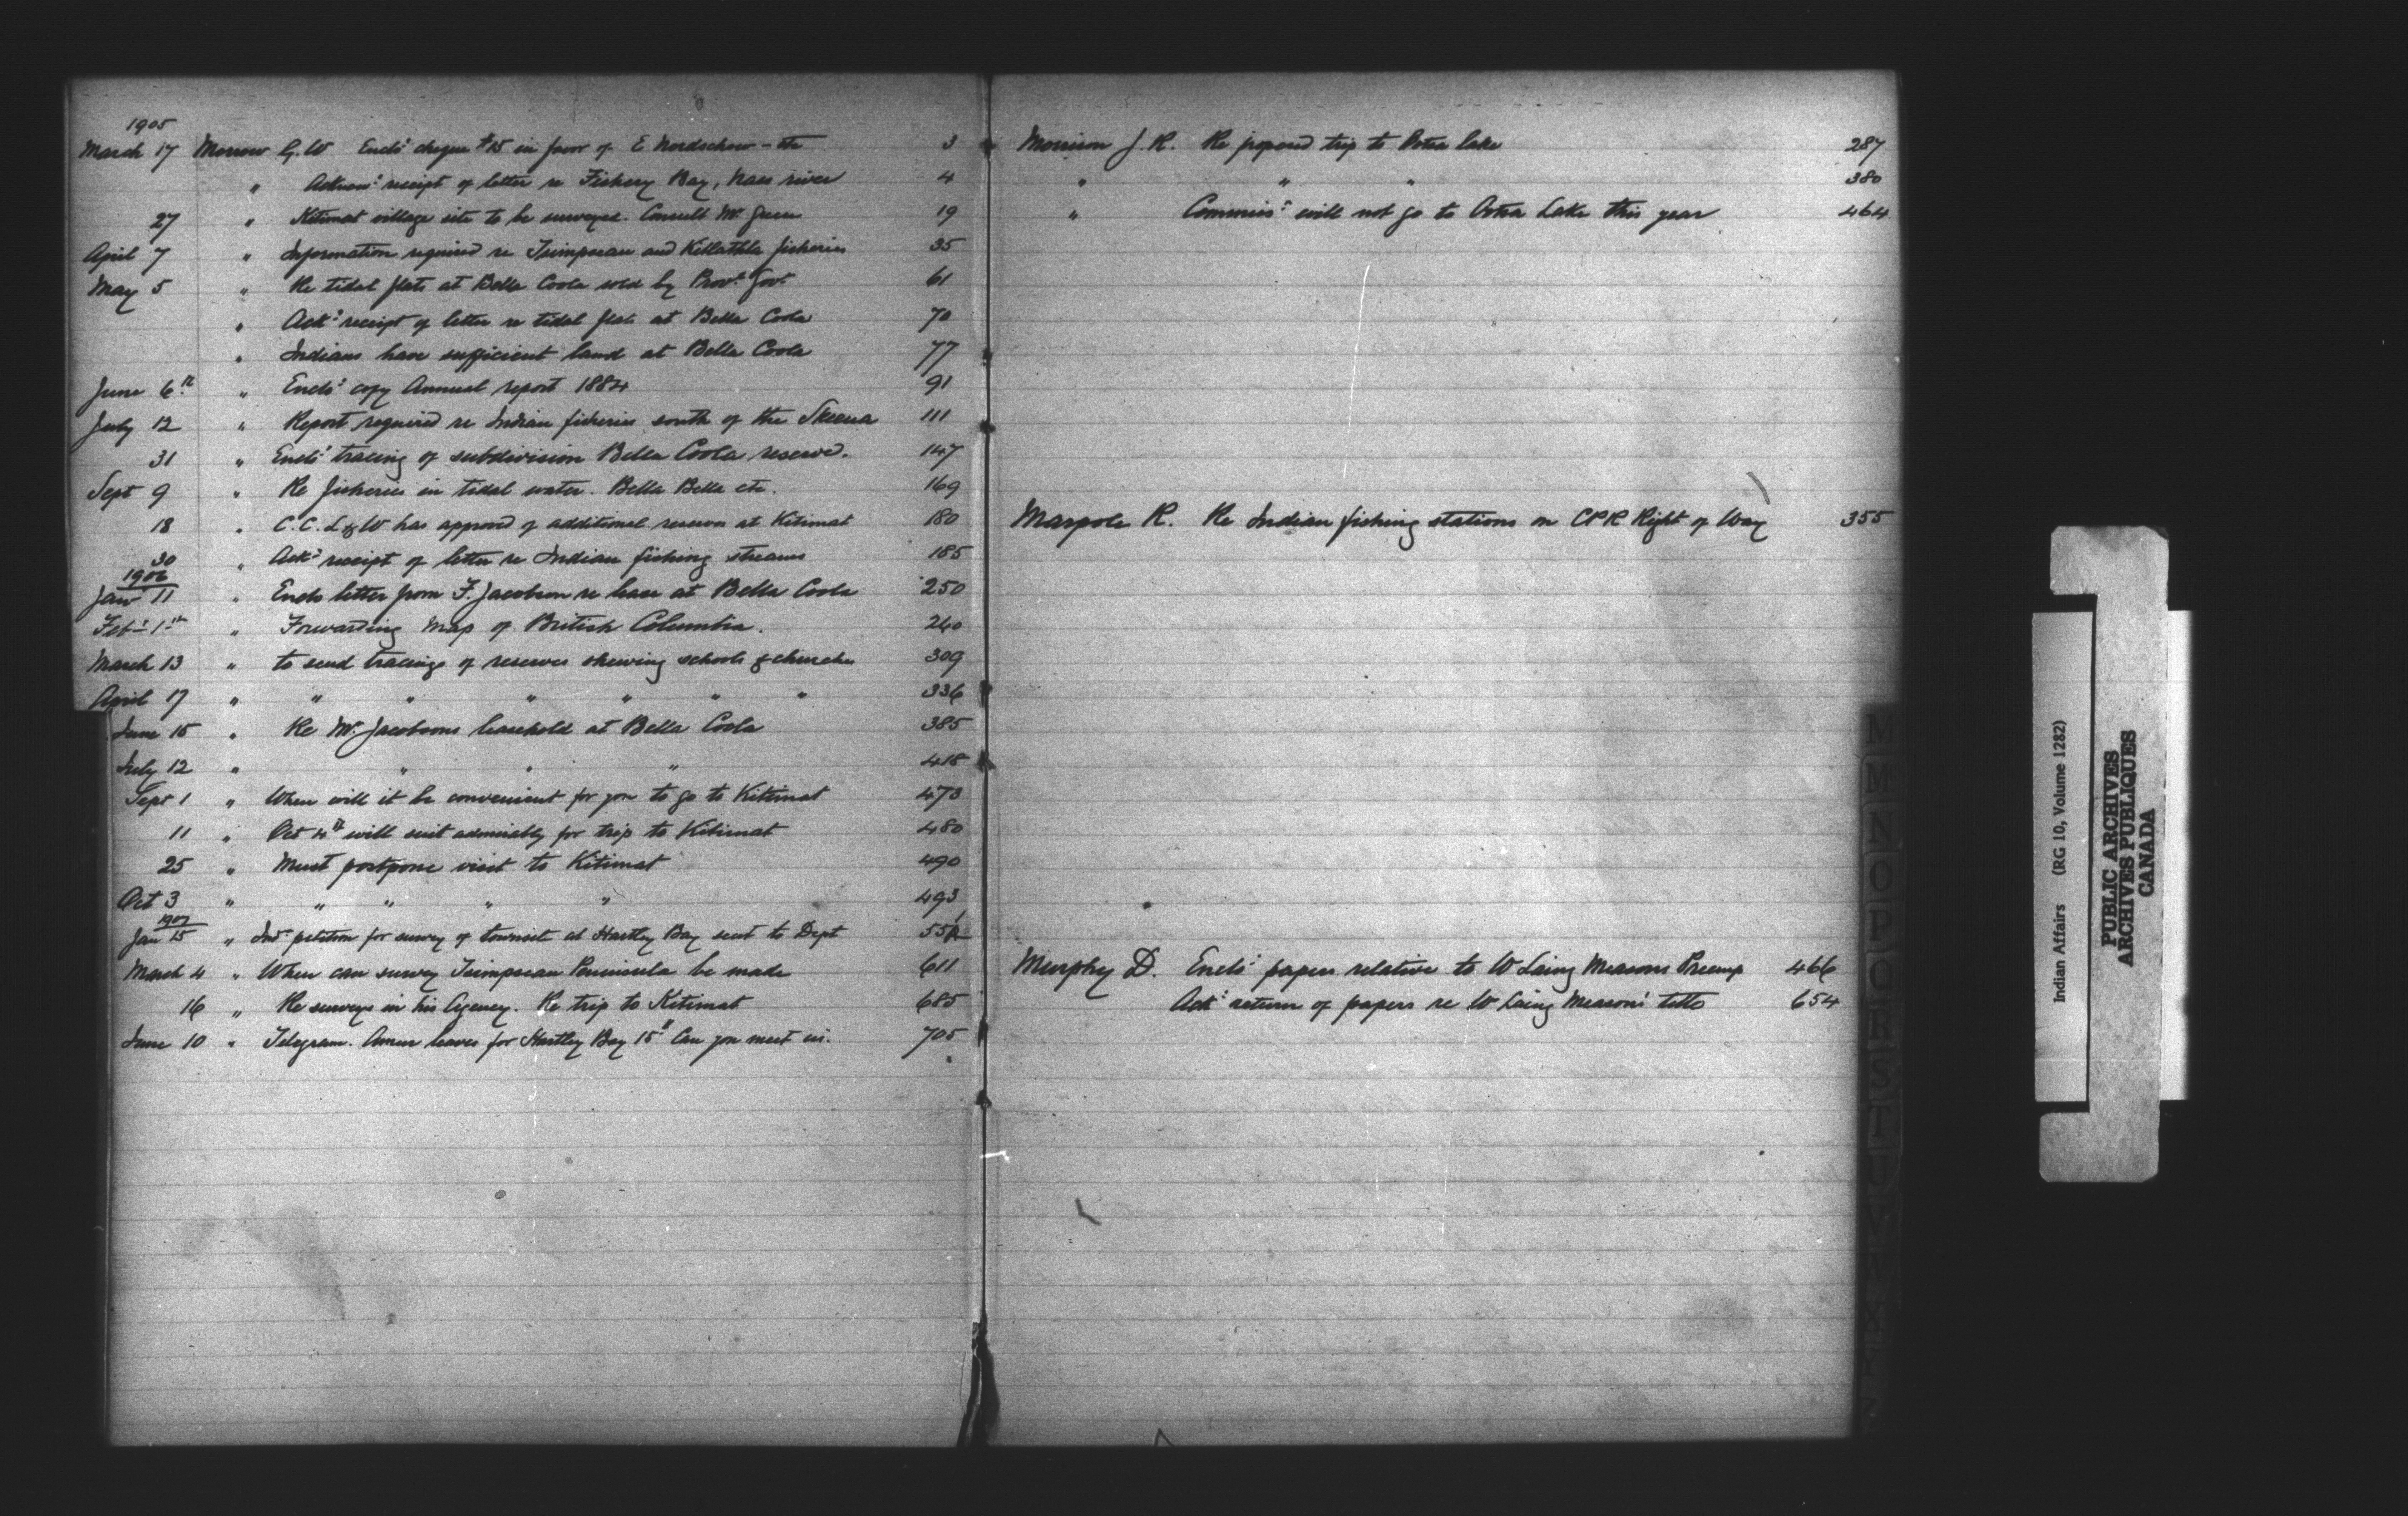 1905
March 17 Morrow G. W Encls' cheque $15 in favor of E Nordschow - etc 3
" Acknow' receipt of letter re Fishery Bay, Naas river 4
27 " Kitimat village site to be surveyed. Consult Mr. Green 19
April 7 " Information required re Tsimpsean and Kitlathla fisheries 35
May 5 " Re tidal flats at Bella Coola sold by Prov. Gov. 61
" Ack' receipt of letter re tidal flats at Bella Coola 70
" Indians have sufficient land at Bella Coola 77
June 6th " Encls' copy Annual report 1884 91
July 12 " Report required re Indian fisheries south of the Skeena 111
31 " Encls' tracing of subdivision Bella Coola reserve. 147
Sept 9 " Re fisheries in tidal water. Bella Bella etc. 169
18 " C.C.L&W has approved of additional reserve at Kitimat 180
30 " Ack' receipt of letter re Indian fishing streams 185
1906
Jan 11 " Encls letter from F. Jacobson re lease at Bella Coola 250
Feb 1st " Forwarding map of British Columbia. 260
March 13 " to send tracings of reserves shewing schools & churches 309
April 17 " " " " " " " 336
June 15 " Re Mr. Jacobsons leasehold at Bella Coola 385
July 12 " " " " 418
Sept 1 " When will it be convenient for you to go to Kitimat 473
11 " Oct 4th will suit admirably for trip to Kitimat 480
25 " Must postpone visit to Kitimat 490
Oct 3 " " " " " 493
1907
Jan 15 " Ind. petition for survey of townsite at Hartley Bay sent to Dept
March 4 " When can survey Tsimpsean Peninsula be made 611
16 " Re surveys in his Agency. Re trip to Kitimat 685
June 10 " Telegram. leaves for Hartley Bay 15th Can you meet us. 705
Morrison J. R. Re proposed trip to Ootsa Lake 287
" " " 380
" Commis' will not go to Ootsa Lake this year 464
Marpole R. Re Indian fishing stations on CPR Right of Way 355
Murphy D. Encls' papers relative to W Laing Measons Preemp 466
Ack' return of papers re W Laing Meason's title 654
M
M
N
O
P
Q
R
S
T
U
V
Indian Affairs (RG 10, Volume 1282)
PUBLIC ARCHIVES
ARCHIVES PUBLIQUES
CANADA